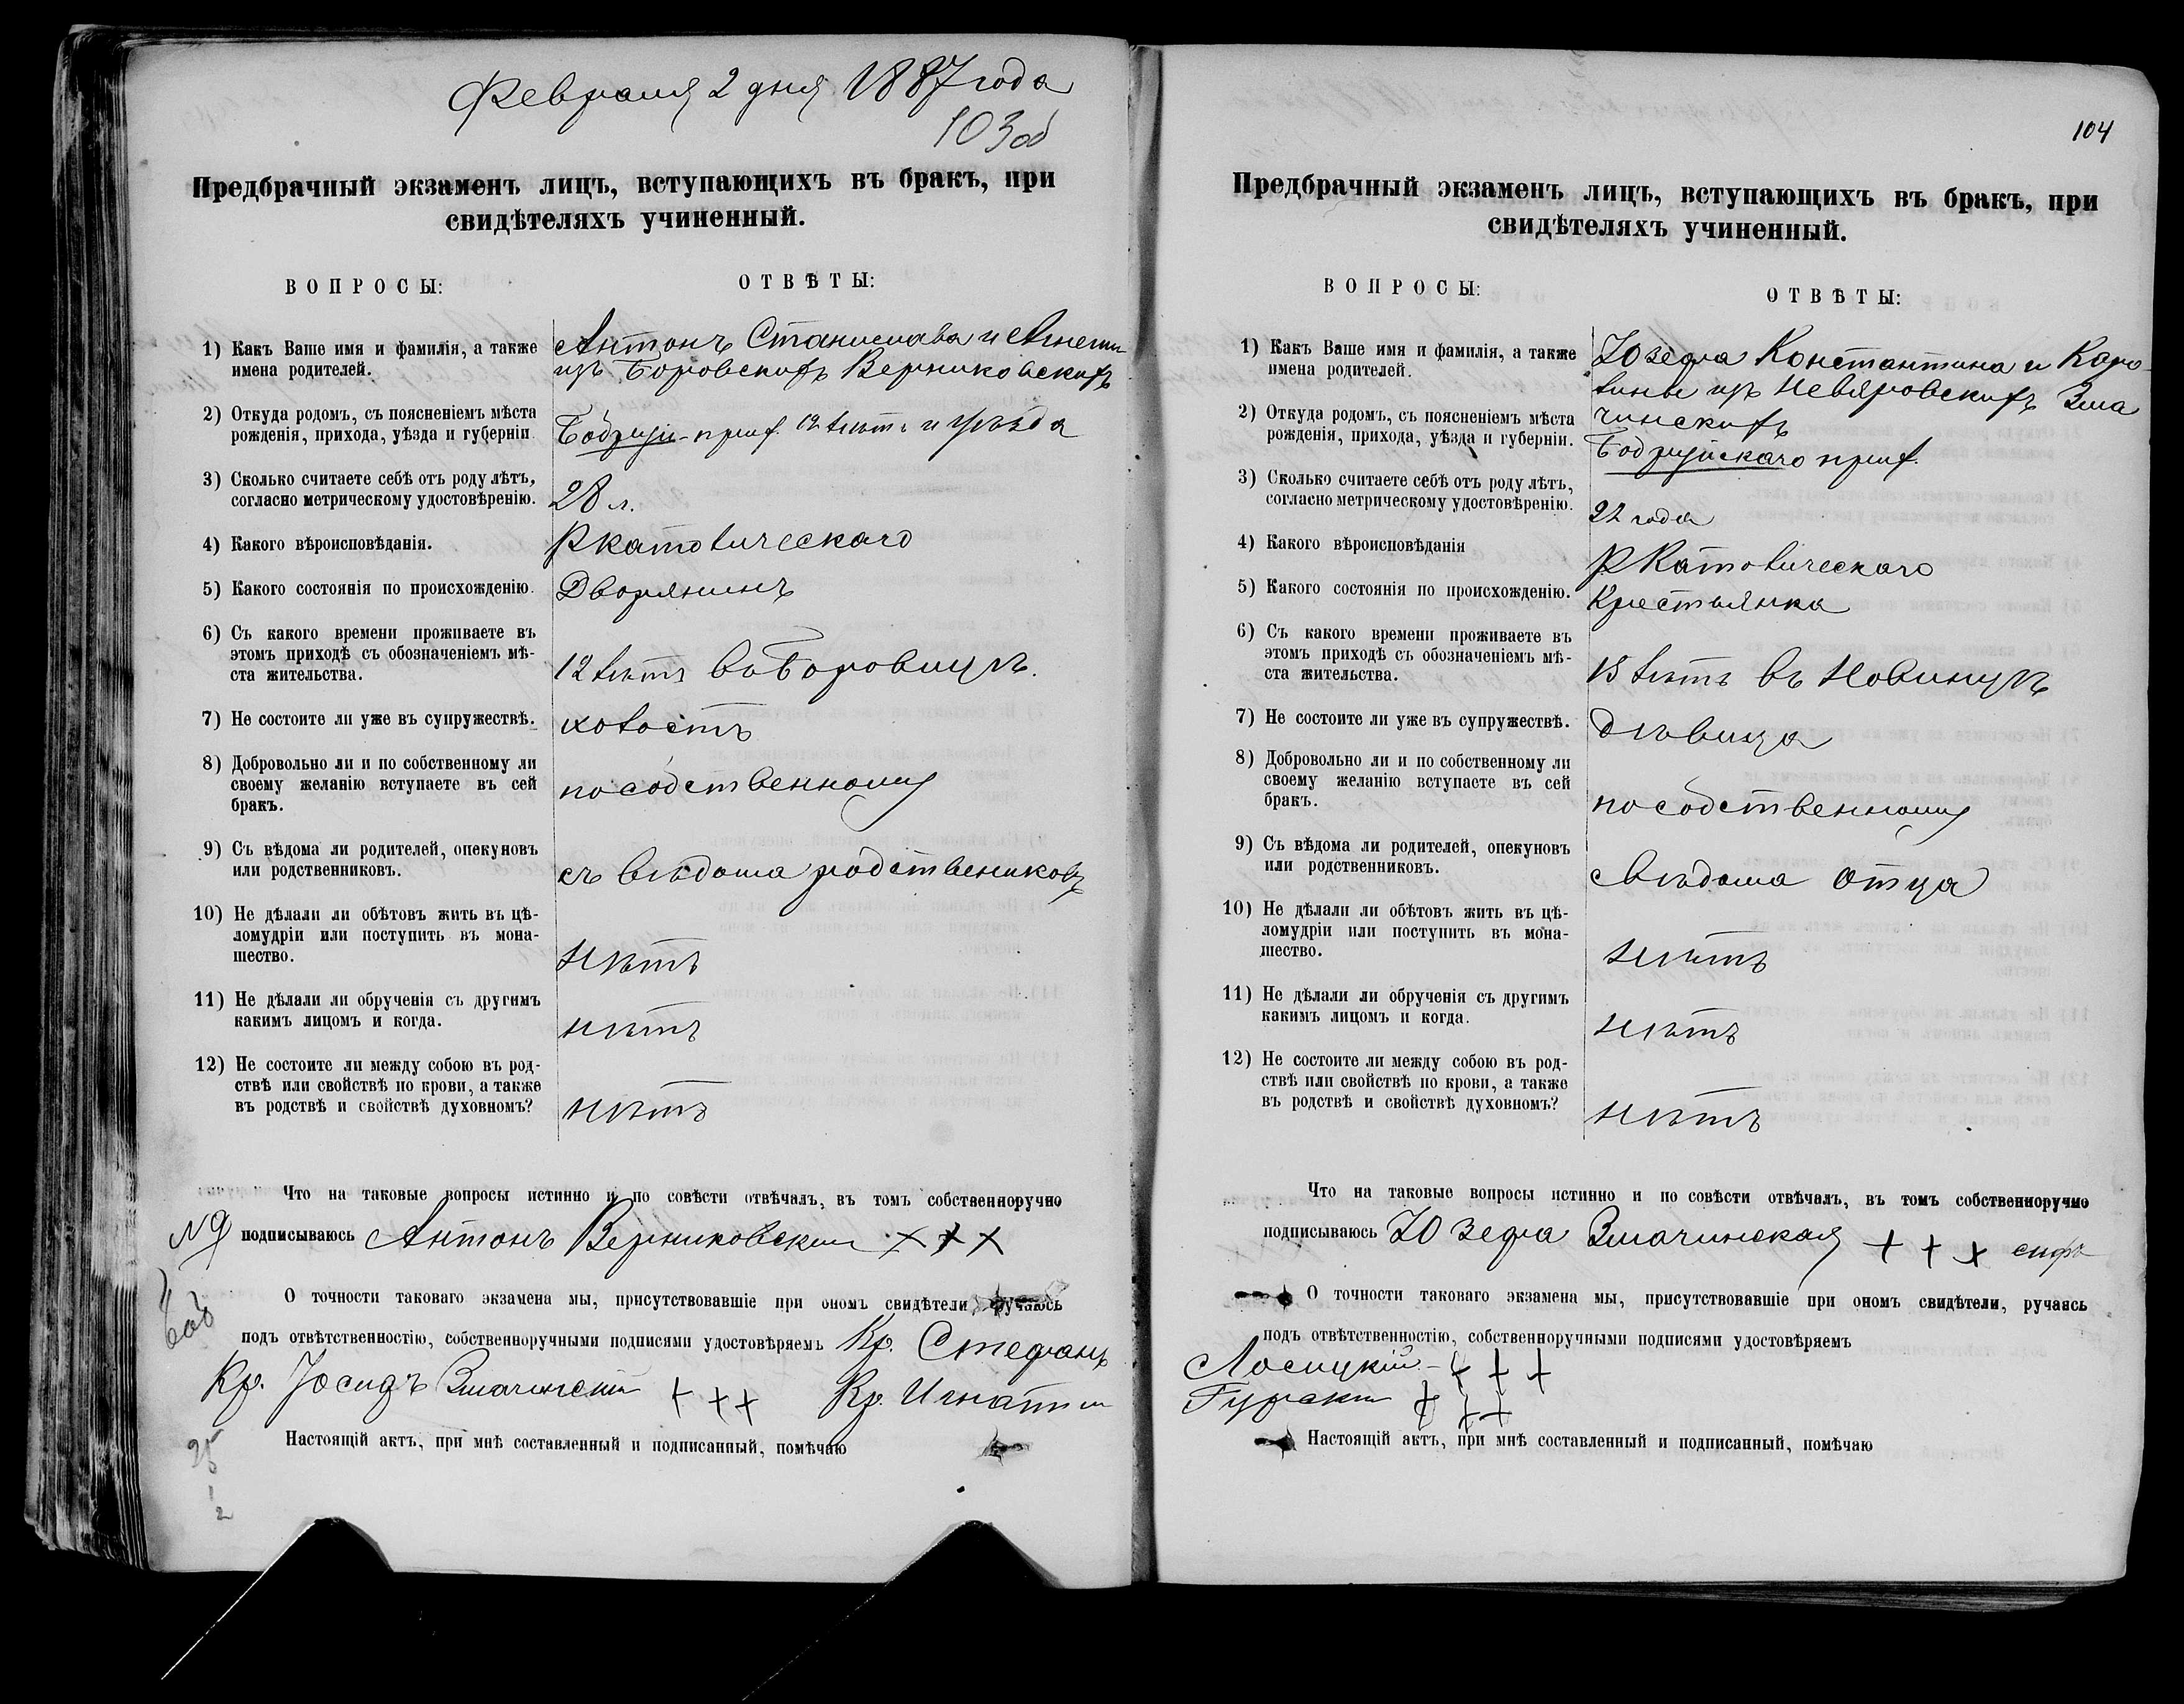 Февраля 2 дня 1887 года
103 об
Предбрачный экзаменъ лицъ, вступающихъ въ бракъ, при
свидѣтеляхъ учиненный.
ВОПРОСЫ:
ОТВѢТЫ:
1) Какъ Ваше имя и фамилія, а также
имена родителей.
Антонъ Станислава и Агнеши
изъ Боровскихъ Верниковскихъ
2) Откуда родомъ, съ поясненіемъ мѣста
рожденія, прихода, уѣзда и губерніи.
прих. и уѣзда
3) Сколько считаете себѣ отъ роду лѣтъ,
согласно метрическому удостовѣренію.
28 л.
4) Какого вѣроисповѣданія.
Р католическаго
5) Какого состоянія по происхожденію.
Дворянинъ
6) Съ какого времени проживаете въ
этомъ приходѣ съ обозначеніемъ мѣ-
ста жительства.
12 лѣтъ въ Боровицѣ.
7) Не состоите ли уже въ супружествѣ.
холостъ
8) Добровольно ли и по собственному ли
своему желанію вступаете въ сей
бракъ.
по собственному
9) Съ вѣдома ли родителей, опекуновъ
или родственниковъ.
съ вѣдома родствениковъ
10) Не дѣлали ли обѣтовъ жить въ цѣ-
ломудріи или поступить въ мона-
шество.
нѣтъ
11) Не дѣлали ли обрученія съ другимъ
какимъ лицомъ и когда.
нѣтъ
12) Не состоите ли между собою въ род-
ствѣ или свойствѣ по крови, а также
въ родствѣ и свойствѣ духовномъ?
нѣтъ
Что на таковые вопросы истинно и по совѣсти отвѣчалъ, въ томъ собственноручно
№ 9 подписываюсь Антонъ Верниковскій + + +
О точности таковаго экзамена мы, присутствовавшіе при ономъ свидѣтели, ручаясь
подъ отвѣтственностію, собственноручными подписями удостовѣряемъ Кр. Стефанъ
Кр. Іосифъ Змачинскій + + + Кр. Игнатій
Настоящій актъ, при мнѣ составленный и подписанный, помѣчаю
104
Предбрачный экзаменъ лицъ, вступающихъ въ бракъ, при
свидѣтеляхъ учиненный.
ВОПРОСЫ:
ОТВѢТЫ:
1) Какъ Ваше имя и фамилія, а также
имена родителей.
Юзефа Константина и Каро-
лины изъ Невяровскихъ Зма
чинскихъ
2) Откуда родомъ, съ поясненіемъ мѣста
рожденія, прихода, уѣзда и губерніи.
прих.
3) Сколько считаете себѣ отъ роду лѣтъ,
согласно метрическому удостовѣренію.
22 года
4) Какого вѣроисповѣданія
Р Католическаго
5) Какого состоянія по происхожденію.
Крестьянка
6) Съ какого времени проживаете въ
этомъ приходѣ съ обозначеніемъ мѣ-
ста жительства.
15 лѣтъ въ Новинцѣ
7) Не состоите ли уже въ супружествѣ.
дѣвица
8) Добровольно ли и по собственному ли
своему желанію вступаете въ сей
бракъ.
по собственному
9) Съ вѣдома ли родителей, опекуновъ
или родственниковъ.
съ вѣдома отца
10) Не дѣлали ли обѣтовъ жить въ цѣ-
ломудріи или поступить въ мона-
шество.
нѣтъ
11) Не дѣлали ли обрученія съ другимъ
какимъ лицомъ и когда.
нѣтъ
12) Не состоите ли между собою въ род-
ствѣ или свойствѣ по крови, а также
въ родствѣ и свойствѣ духовномъ?
нѣтъ
Что на таковые вопросы истинно и по совѣсти отвѣчалъ, въ томъ собственноручно
подписываюсь Юзефа Змачинская + + +
О точности таковаго экзамена мы, присутствовавшіе при ономъ свидѣтели, ручаясь
подъ отвѣтственностію, собственноручными подписями удостовѣряемъ
Лосицкій - + + +
Гурскій + + +
Настоящій актъ, при мнѣ составленный и подписанный, помѣчаю